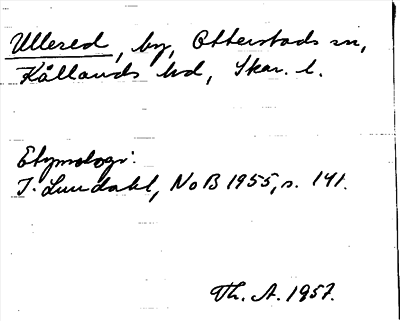 Ullered, by, Otterstads sn,
Kållands hd, Skar. l.
Etymologi:
I. Lundahl, NoB 1955, s. 141.
Th. A. 1957.